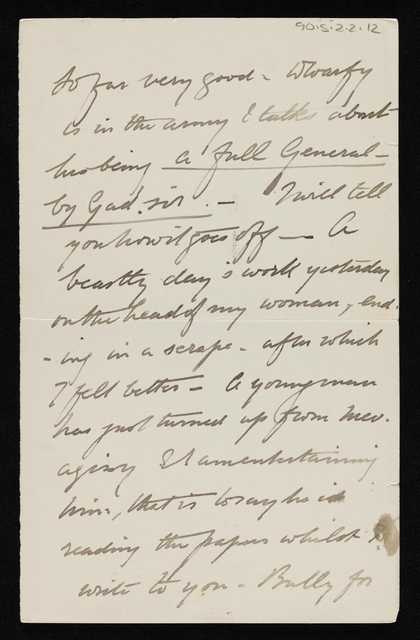 90.5.2.2.12
So far very good - Dwarfy
is in the army & talks about
his being a full General -
by Gad. sir. - I will tell
you how it goes off - A
beastly day's work yesterday
on the head of my woman, end-
-ing in a scrape - after which
I felt better - A young man
has just turned up from
& I am entertaining
him, that is to say he is
reading the papers whilst I
write to you - Bully for